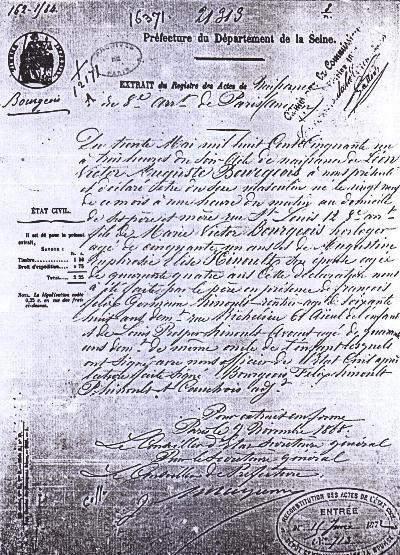 162-1/84
16371. 21313
1.
Préfecture du Département de la Seine.
ARCHIVES
DE
PARIS
EXTRAIT du Registre des Actes de Naissance
du 8e arrt. de Paris
Bourgeois
Du trente Mai mil huit Cent Cinquante un
à trois heures du soir Acte de naissance de Léon
Victor Auguste Bourgeois à nous présenté
et déclaré être du sexe masculin né le vingt neuf
de ce mois à une heure du matin au domicile
de ses père et mère rue St Louis 12 8e arrt
fils de Marie Victor Bourgeois horloger
agé de cinquante un ans et de Augustine
Elise Hinoult son épouse agée
de quarante quatre ans Cette déclaration nous
a été faite par le père en présence de françois
felix Hinoult rentier agé de soixante
huit ans demt. rue Richelieu 61 Aieul de l'enfant
et de Louis Prosper Hinoult Avocat agé de quarante
ans demt. de même oncle de l'enfant lesquels
ont signé avec nous officier de l'état Civil après
lecture faite Signé Bourgeois Felix hinoult
P. hinoult et Cauchois adjt
ÉTAT CIVIL.
Il est dû pour le présent
extrait,
SAVOIR :
fr. c.
Timbre
Droit d'expédition
TOTAL
NOTA. La légalisation coûte
0,25 c. en sus des frais
ci-dessus.
Pour extrait conforme
Paris le 9 Novembre 1868.
Le Conseiller d'Etat Secrétaire général
Pour le Secrétaire général
Le Conseiller de Préfecture
coll
RECONSTITUTION DES ACTES DE L'ÉTAT CIVIL
ENTRÉE
1872